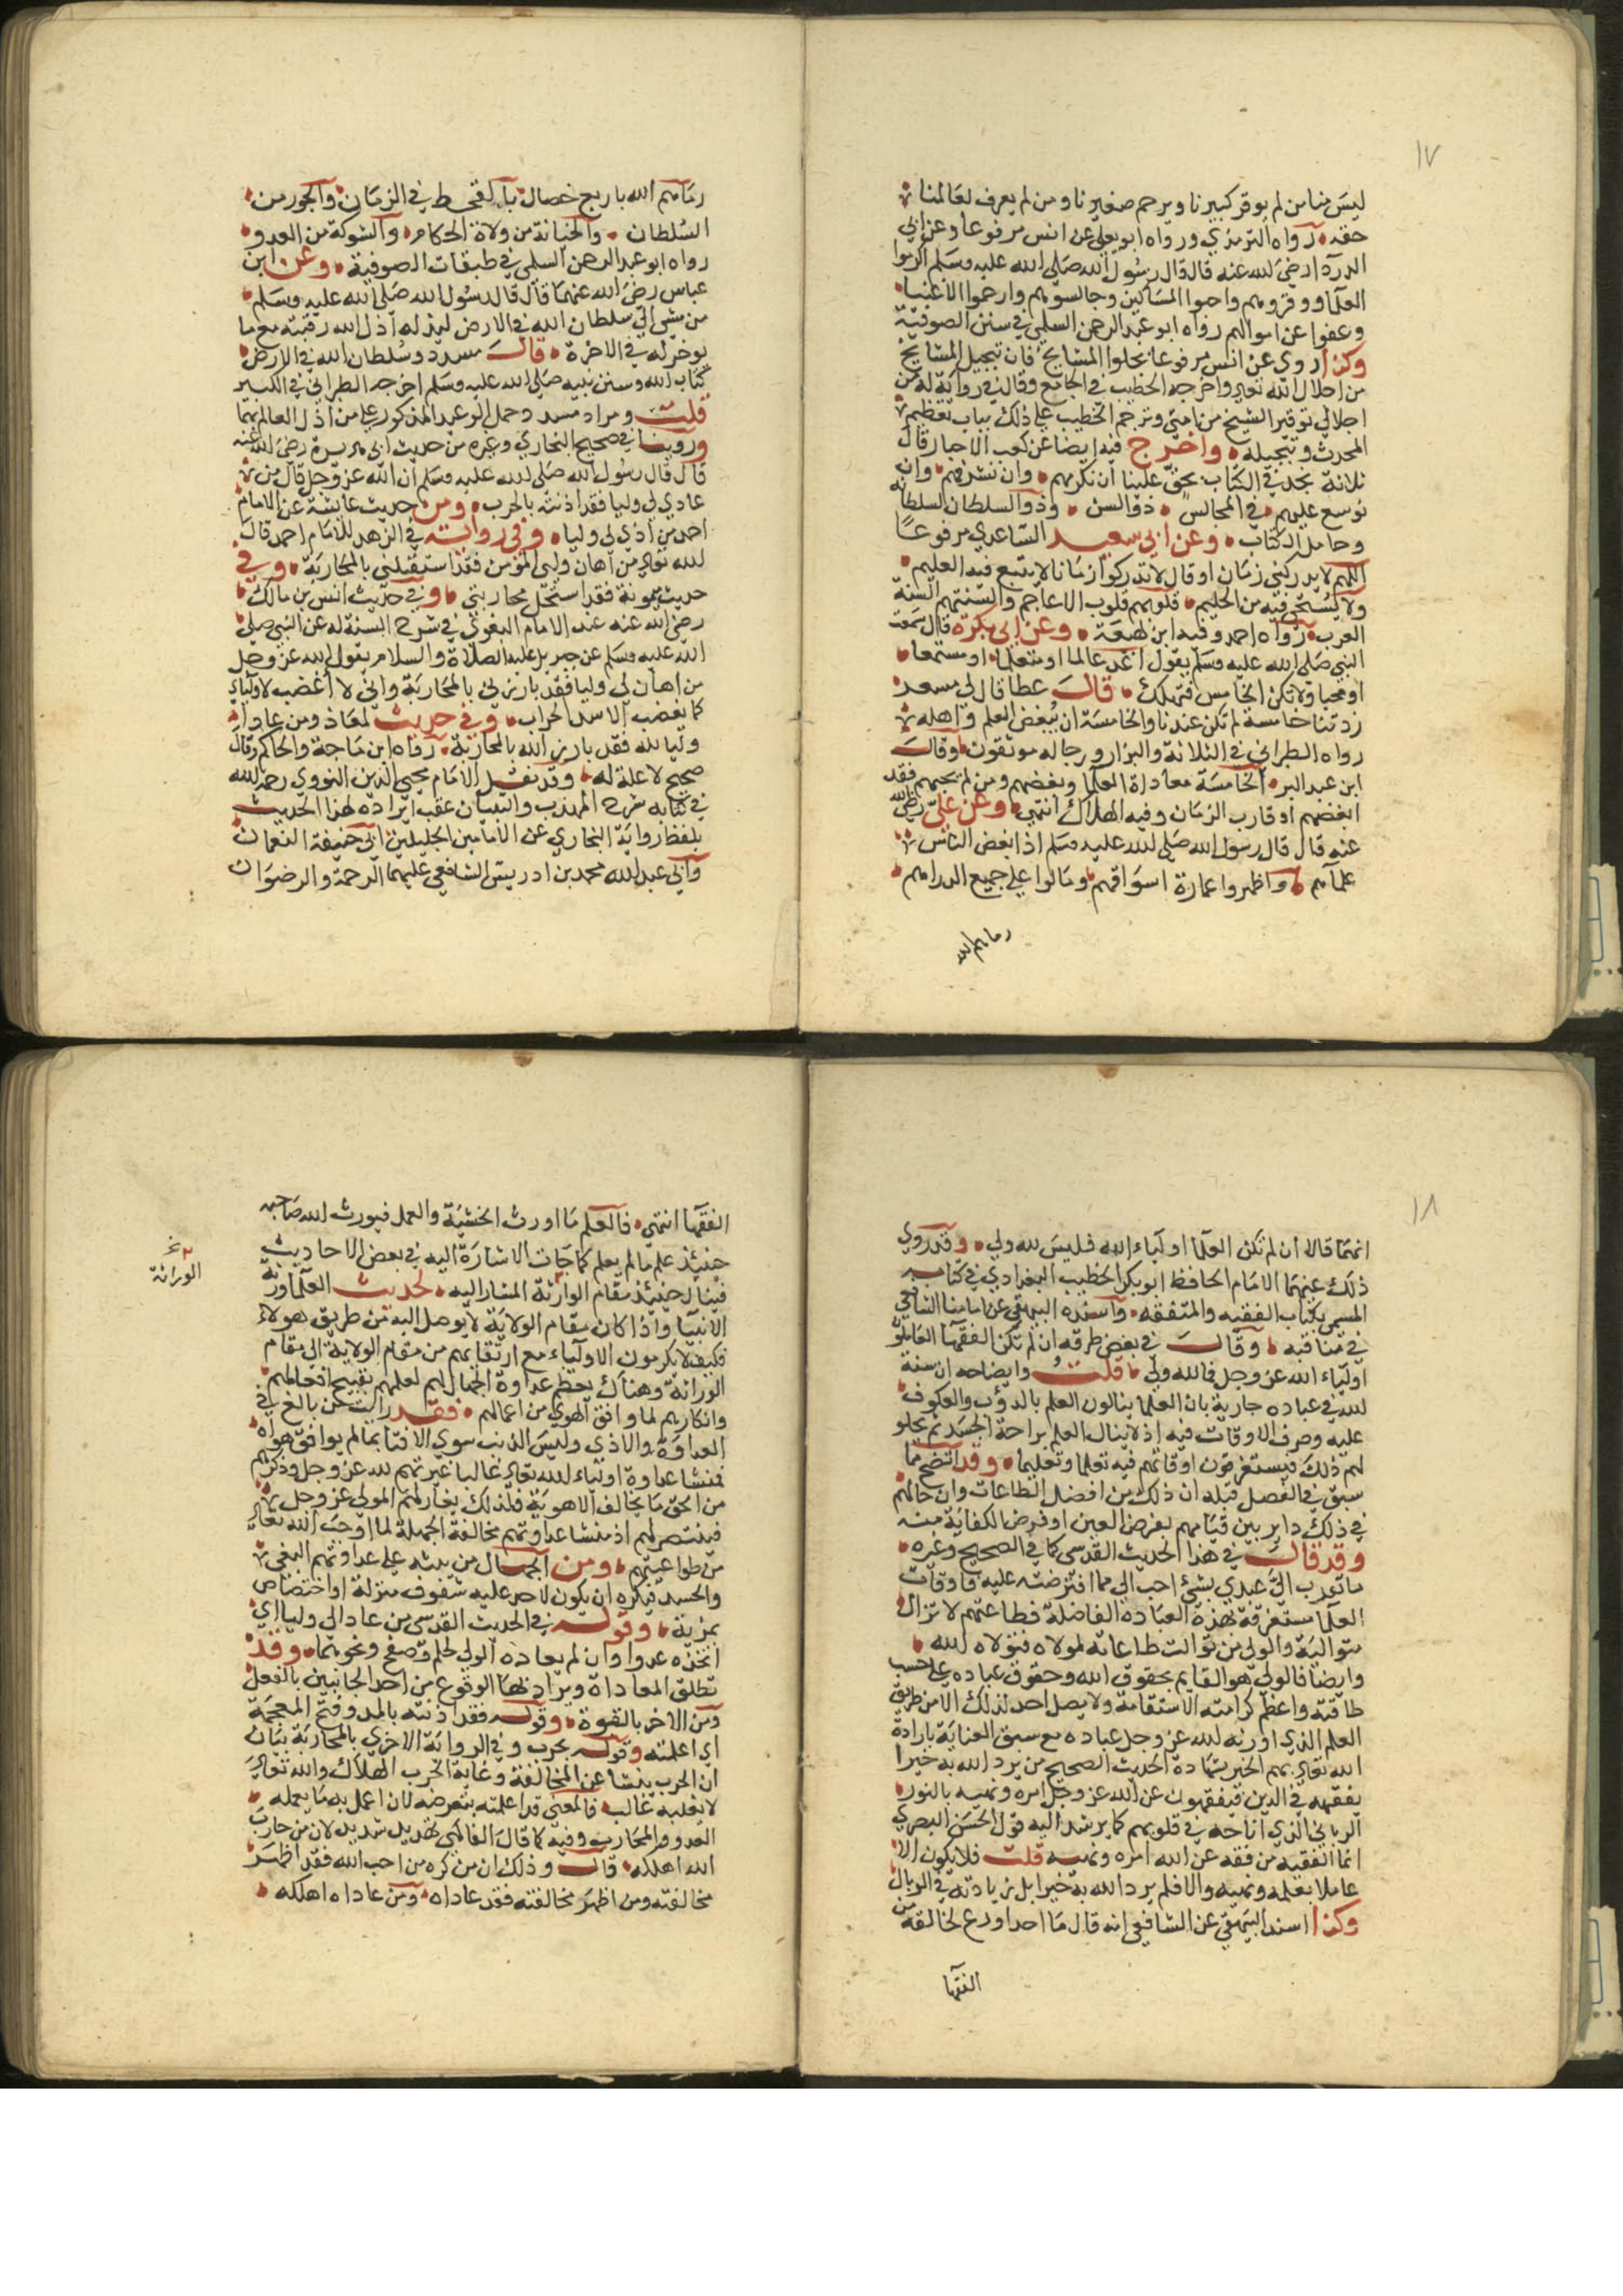 ١٧
ليس منا من لم يوقر كبيرنا ويرحم صغيرنا ومن لم يعرف لعالمنا
حقه رواه الترمذي ورواه ابو يعلى عن انس مرفوعا وعن ابي
الدرداء رضي الله عنه قال قال رسول الله صلى الله عليه وسلم اكرموا
العلما ووقروهم واحبوا المساكين وجالسوهم وارحموا الاغنيا
وعفوا عن اموالهم رواه ابو عبد الرحمن السلمي في سنن الصوفية
وكذا روي عن انس مرفوعا بجلوا المشايخ فان تبجيل المشايخ
من اجلال الله تعالى واخرجه الخطيب في الجامع وقال في رواية له من
اجلالي توقير الشيخ من امتي وترجم الخطيب على ذلك بباب تعظيم
المحدث وتبجيله واخرج فيه ايضا عن كعب الاحبار قال
ثلاثة نجد في الكتاب يحق علينا ان نكرمهم وان نشرفهم وان
نوسع عليهم في المجالس ذو السن وذو السلطان لسلطانه
وحامل الكتاب وعن ابي سعيد الساعدي مرفوعا
اللهم لا يدركني زمان او قال لا تدركوا زمانا لا يتبع فيه العليم
ولا يستحى فيه من الحليم قلوبهم قلوب الاعاجم والسنتهم السنة
العرب رواه احمد وفيه ابن لهيعة وعن ابي بكرة قال سمعت
النبي صلى الله عليه وسلم يقول اغد عالما او متعلما او مستمعا
او محبا ولا تكن الخامس فتهلك قال عطا قال لي مسعد
زدتنا خامسة لم تكن عندنا والخامسة ان تبغض العلم واهله
رواه الطبراني في الثلاثة والبزار ورجاله موثقون وقال
ابن عبد البر الخامسة معاداة العلما وبغضهم ومن لم يحبهم فقد
ابغضهم او قارب الزمان وفيه الهلاك انتهى وعن علي رضي الله
عنه قال قال رسول الله صلى الله عليه وسلم اذا ابغض الناس
علماهم واظهروا عمارة اسواقهم ومالوا على جميع الدراهم
رماهم الله
رماهم الله باربع خصال بالقحط في الزمان والجور من
السلطان والخيانة من ولاة الحكام والشوكة من العدو
رواه ابو عبد الرحمن السلمي في طبقات الصوفية وعن ابن
عباس رضي الله عنهما قال قال رسول الله صلى الله عليه وسلم
من مشى الى سلطان الله في الارض ليذله اذل الله رقبته مع ما
يوخر له في الاخرة قال مسدد وسلطان الله في الارض
كتاب الله وسنن نبيه صلى الله عليه وسلم اخرجه الطبراني في الكبير
قلت ومراد مسدد وحمل الوعيد المذكور على من اذل العالم بهما
وروينا في صحيح البخاري وغيره من حديث ابي هريرة رضي الله عنه
قال قال رسول الله صلى الله عليه وسلم ان الله عز وجل قال من
عادى لي وليا فقد اذنته بالحرب ومن حديث عايشة عن الامام
احمد من اذى لي وليا وفي رواية في الزهد للامام احمد قال
الله تعالى من اهان وليي المؤمن فقد استقبلني بالمحاربة وفي
حديث ميمونة فقد استحل محاربتي وفي حديث انس بن مالك
رضي الله عنه عند الامام البغوي في شرح السنة له عن النبي صلى
الله عليه وسلم عن جبريل عليه الصلاة والسلام يقول الله عز وجل
من اهان لي وليا فقد بارزني بالمحاربة واني لا اغضب لاوليائي
كما يغضب الاسد الحراب وفي حديث لمعاذ ومن عادا
وليا لله فقد بارز الله بالمحاربة رواه ابن ماجة والحاكم وقال
صحيح لا علة له وقد نقل الامام محيي الدين النووي رحمه الله
في كتابه شرح المهذب والتبيان عقب ايراده لهذا الحديث
بلفظ رواية البخاري عن الامامين الجليلين ابي حنيفة النعمان
وابي عبد الله محمد بن ادريس الشافعي عليهما الرحمة والرضوان
١٨
انهما قالا ان لم تكن العلما اولياء الله فليس لله ولي وقد روي
ذلك عنهما الامام الحافظ ابو بكر الخطيب البغدادي في كتابه
المسمى بكتاب الفقيه والمتفقه واسنده البيهقي عن امامنا الشافعي
في مناقبه وقال في بعض طرقه ان لم تكن الفقها العاملون
اولياء الله عز وجل فما لله ولي قلت وايضاحه ان سنة
الله في عباده جارية بان العلما ينالون العلم بالدؤب والعكوف
عليه وصرف الاوقات فيه اذ لا ينال العلم براحة الجسد ثم يحلو
لهم ذلك فيستغرقون اوقاتهم فيه تعلما وتعليما وقد اتضح مما
سبق في الفصل قبله ان ذلك من افضل الطاعات وان حالهم
في ذلك داير بين قيامهم بفرض العين او فرض الكفاية منه
وقد قال في هذا الحديث القدسي كما في الصحيح وغيره
ما تقرب الي عبدي بشيء احب الي مما افترضته عليه فاوقات
العلما مستغرقة لهذه العبادة الفاضلة فطاعتهم لا تزال
متوالية والولي من توالت طاعاته لمولاه فتولاه الله
وايضا فالولي هو القايم بحقوق الله وحقوق عباده على حسب
طاقته واعظم كرامته الاستقامة ولا يصل احد لذلك الا من طريق
العلم الذي اورثه الله عز وجل عباده مع سبق العناية بارادة
الله تعالى بهم الخير بشهادة الحديث الصحيح من يرد الله به خيرا
يفقهه في الدين فيفقهون عن الله عز وجل امره ونهيه بالنور
الرباني الذي اتاحه في قلوبهم كما يرشد اليه قول الحسن البصري
انما الفقيه من فقه عن الله امره ونهيه قلت فلا يكون الا
عاملا بعلمه ونهيه والا فلم يرد الله به خيرا بل زيادته في الوبال
وكذا اسند البيهقي عن الشافعي انه قال ما احد اورع لخالقه من
الفقها
الفقها انتهى فالعلم ما اورث الخشية والعمل فيورث الله صاحبه
حينئذ علم ما لم يعلم كما جات الاشارة اليه في بعض الاحاديث
فينال حينئذ مقام الوارثة المشار اليه لحديث العلما ورثة
الانبيا واذا كان مقام الولاية لا يوصل اليه من طريق هولاء
فكيف لا يكرمون الاولياء مع ارتقايهم من مقام الولاية الى مقام
الوراثة وهناك يعظم عداوة الجهال لهم لعلمهم بقبيح افعالهم
وانكارهم لما وافق الهوى من اعمالهم فقد رايت من بالغ في
العداوة والاذى وليس الذنب سوى الافتا بما لم يوافق هواه
فمنشا عداوة اولياء الله تعالى غالبا غيرتهم لله عز وجل وذكرهم
من الحق ما يخالف الاهوية فلذلك يغار لهم المولى عز وجل
فينتصر لهم اذ منشا عداوتهم مخالفة الجهلة لما اوجب الله تعالى
من طواعيتهم ومن الجهال من يبعثه على عداوتهم البغي
والحسد فيكره ان يكون لاحد عليه شفوف منزلة او اختصاص
بمزية وقوله في الحديث القدسي من عادا لي وليا اي
اتخذه عدوا وان لم يعاده الولي لحلم وصفح ونحوهما وقد
تطلق المعاداة ويراد بها الوقوع من احد الجانبين بالفعل
ومن الاخر بالقوة وقوله فقد اذنته بالمد وفتح المعجمة
اي اعلمته وقوله بحرب وفي الرواية الاخرى بالمحاربة بيان
ان الحرب ينشا عن المخالفة وغاية الحرب الهلاك والله تعالى
لا يغلبه غالب فالمعنى قد اعلمته بتعرضه لان اعمل به ما يعمله
العدو والمحارب وفيه كما قال الفاكهي تهديد شديد لان من حارب
الله اهلكه قال وذلك ان من كره من احب الله فقد اظهر
مخالفته ومن اظهر مخالفته فقد عاداه ومن عاداه اهلكه
نخ
الوراثة